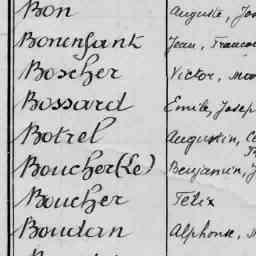 Bon Auguste, Jos
Bonenfant Jean, Francoi
Boscher Victor, Mar
Bossard Emile, Josep
Botrel Augustin, Ce
Boucher (Le) Benjamin, J
Boucher Felix
Boudan Alphonse, M